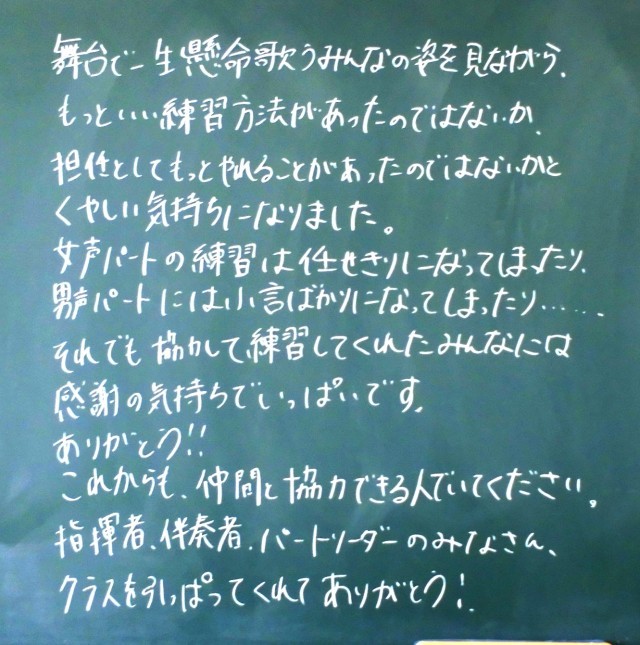 舞台で一生懸命歌うみんなの姿を見ながら、
もっといい練習方法があったのではないか、
担任としてもっとやれることがあったのではないかと
くやしい気持ちになりました。
女声パートの練習は任せきりになってしまったり、
男声パートには小言ばかりになってしまったり……。
それでも協力して練習してくれたみんなには
感謝の気持ちでいっぱいです。
ありがとう!!
これからも、仲間と協力できる人でいてください。
指揮者、伴奏者、パートリーダーのみなさん、
クラスを引っぱってくれてありがとう!